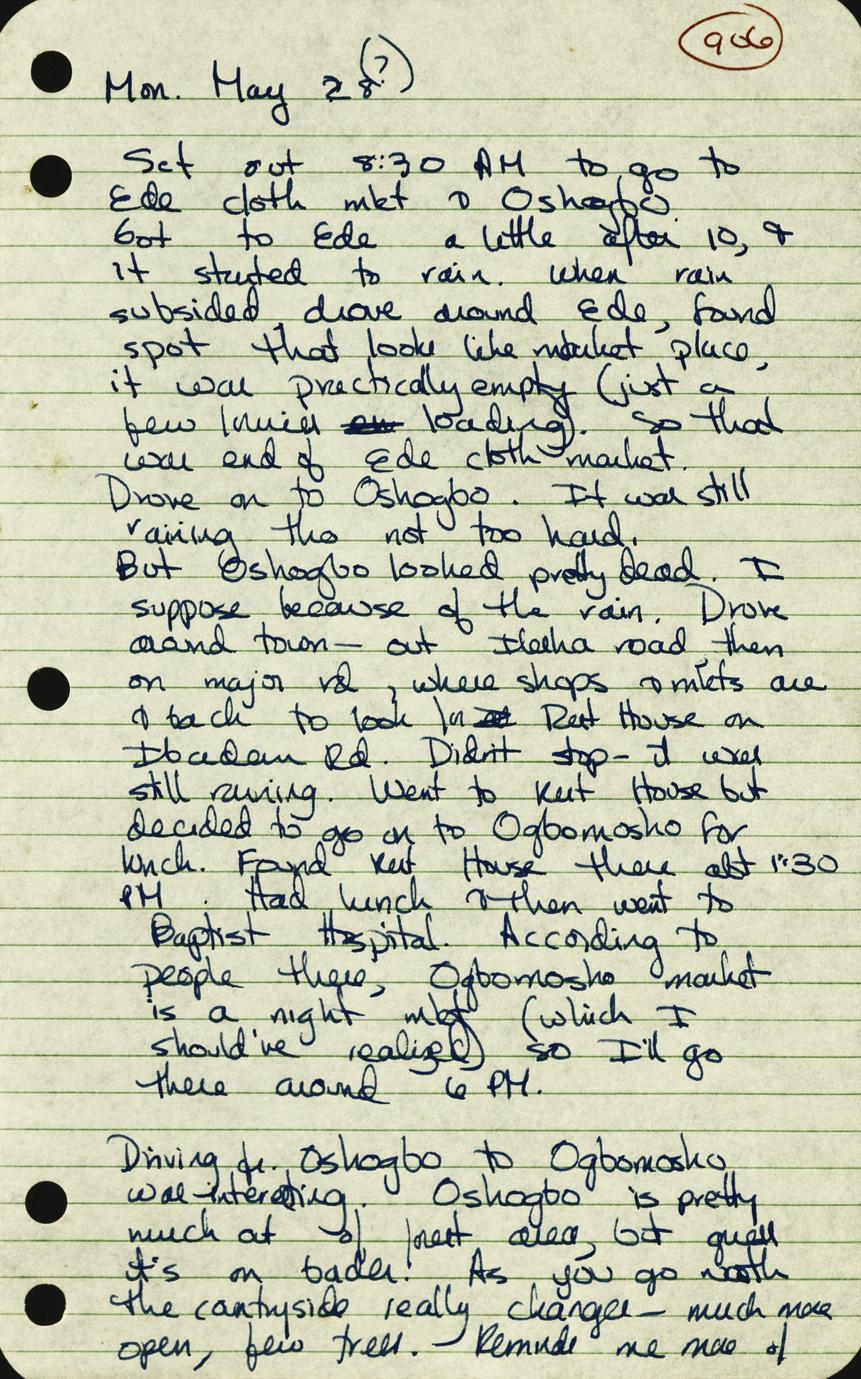 906
Mon. May 28(?)
Set out 8:30 AM to go to
Ede cloth mkt & Oshogbo
Got to Ede a little after 10, &
it started to rain. When rain
subsided, drove around Ede, found
spot that looks like market place,
it was practically empty (just a
few lorries loading). So that
was end of Ede cloth market.
Drove on to Oshogbo. It was still
raining tho not too hard.
But Oshogbo looked pretty dead. I
suppose because of the rain. Drove
around town— out Ilesha road, then
on major rd, where shops & mkts are
& back to look for Rest House on
Ibadan Rd. Didn't stop— it was
still raining. Went to Rest House but
decided to go on to Ogbomosho for
lunch. Found Rest House there abt 1:30
PM. Had lunch & then went to
Baptist Hospital. According to
people there, Ogbomosho market
is a night mkt (which I
should've realized) so I'll go
there around 6 PM.
Driving fr. Oshogbo to Ogbomosho
was interesting. Oshogbo is pretty
much at forest area, but guess
it's on border. As you go north
the countryside really changes— much more
open, few trees. — Reminds me more of